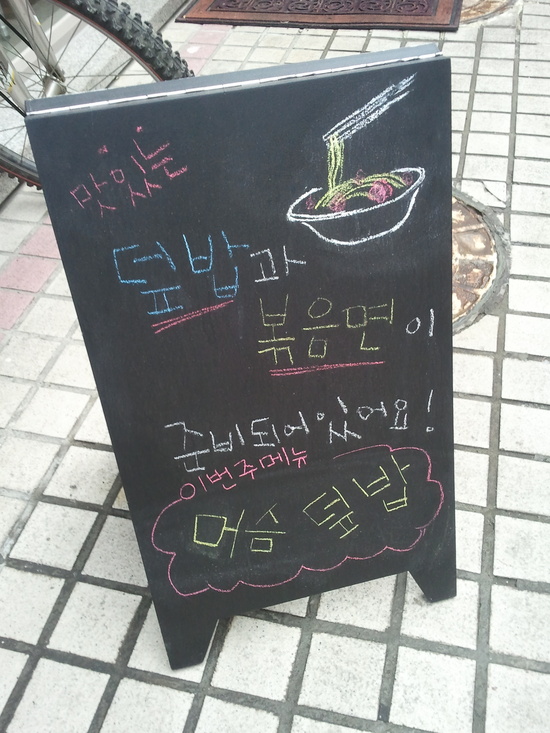 맛있는
덮밥과
볶음면이
준비되어있어요!
이번주메뉴
머슴 덮밥